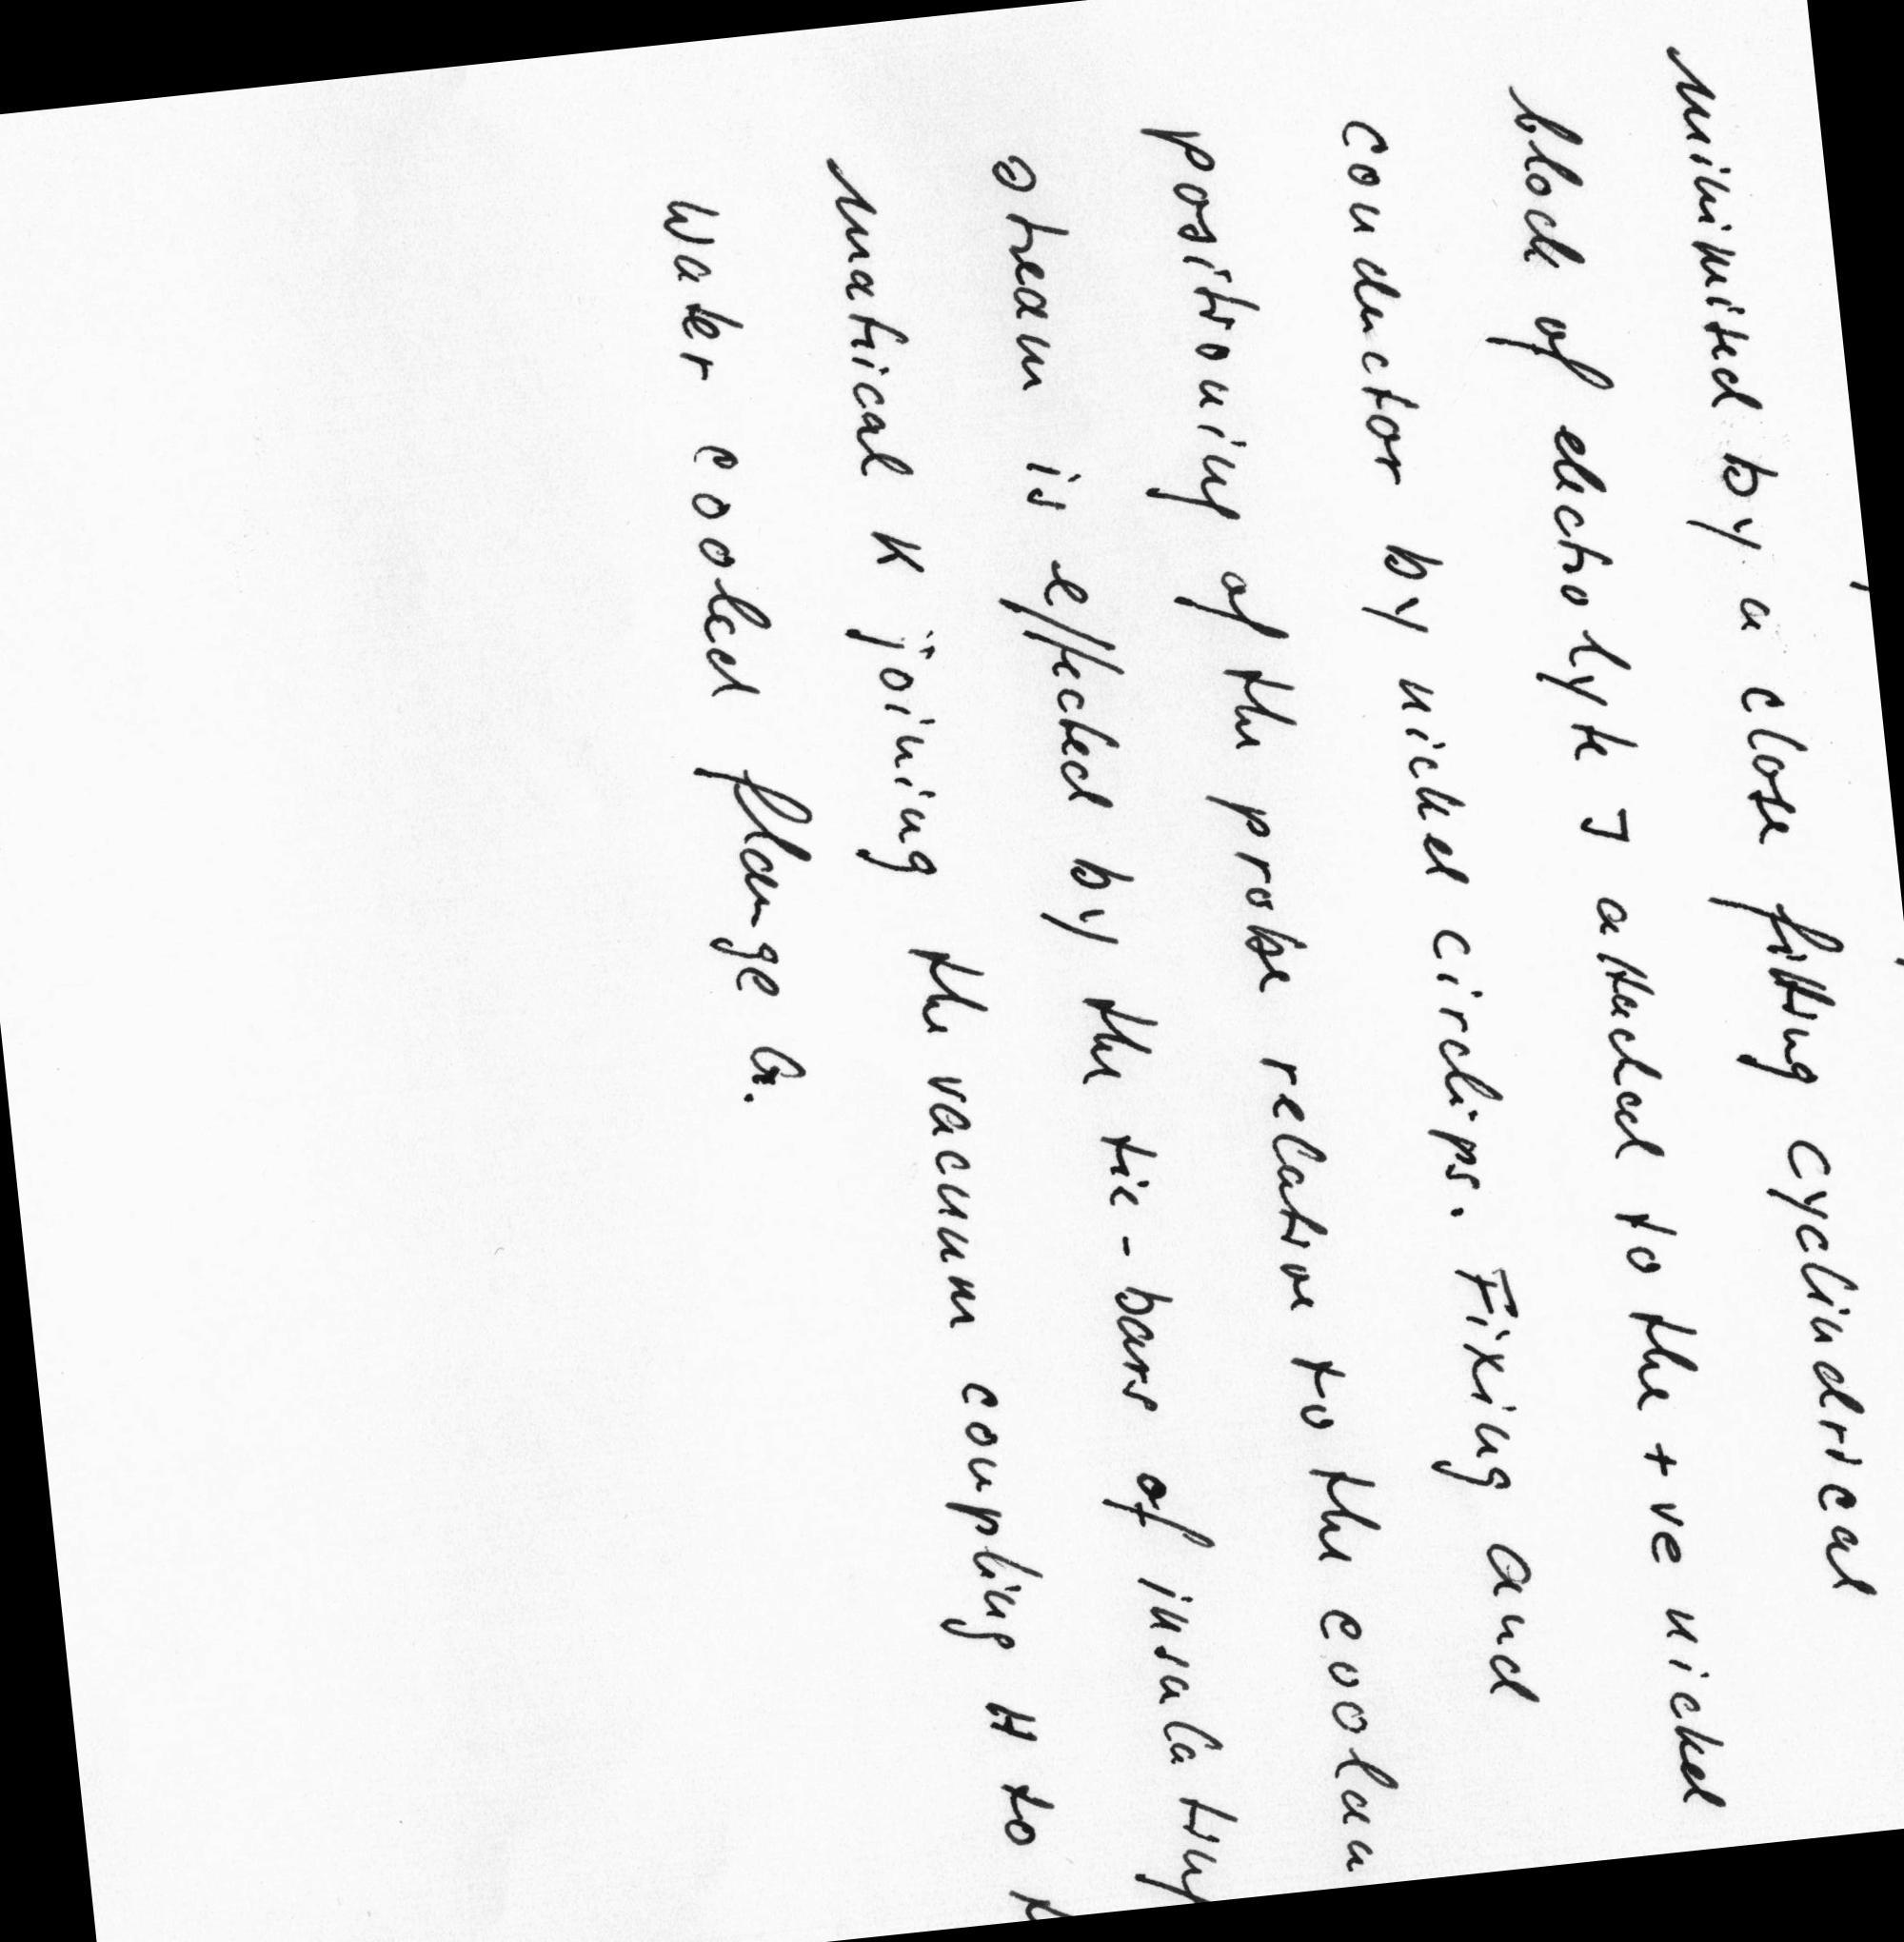 minimited by a close fitting cyclindrical
block of electrolyte J attached to the +ve nickel
conductor by nickel circlips. Fixing and
positioning of the probe relative to the coolan
stream is effected by the tie-bars of insulating
matical K joining the vacuum coupling H to t
water cooled flange G.